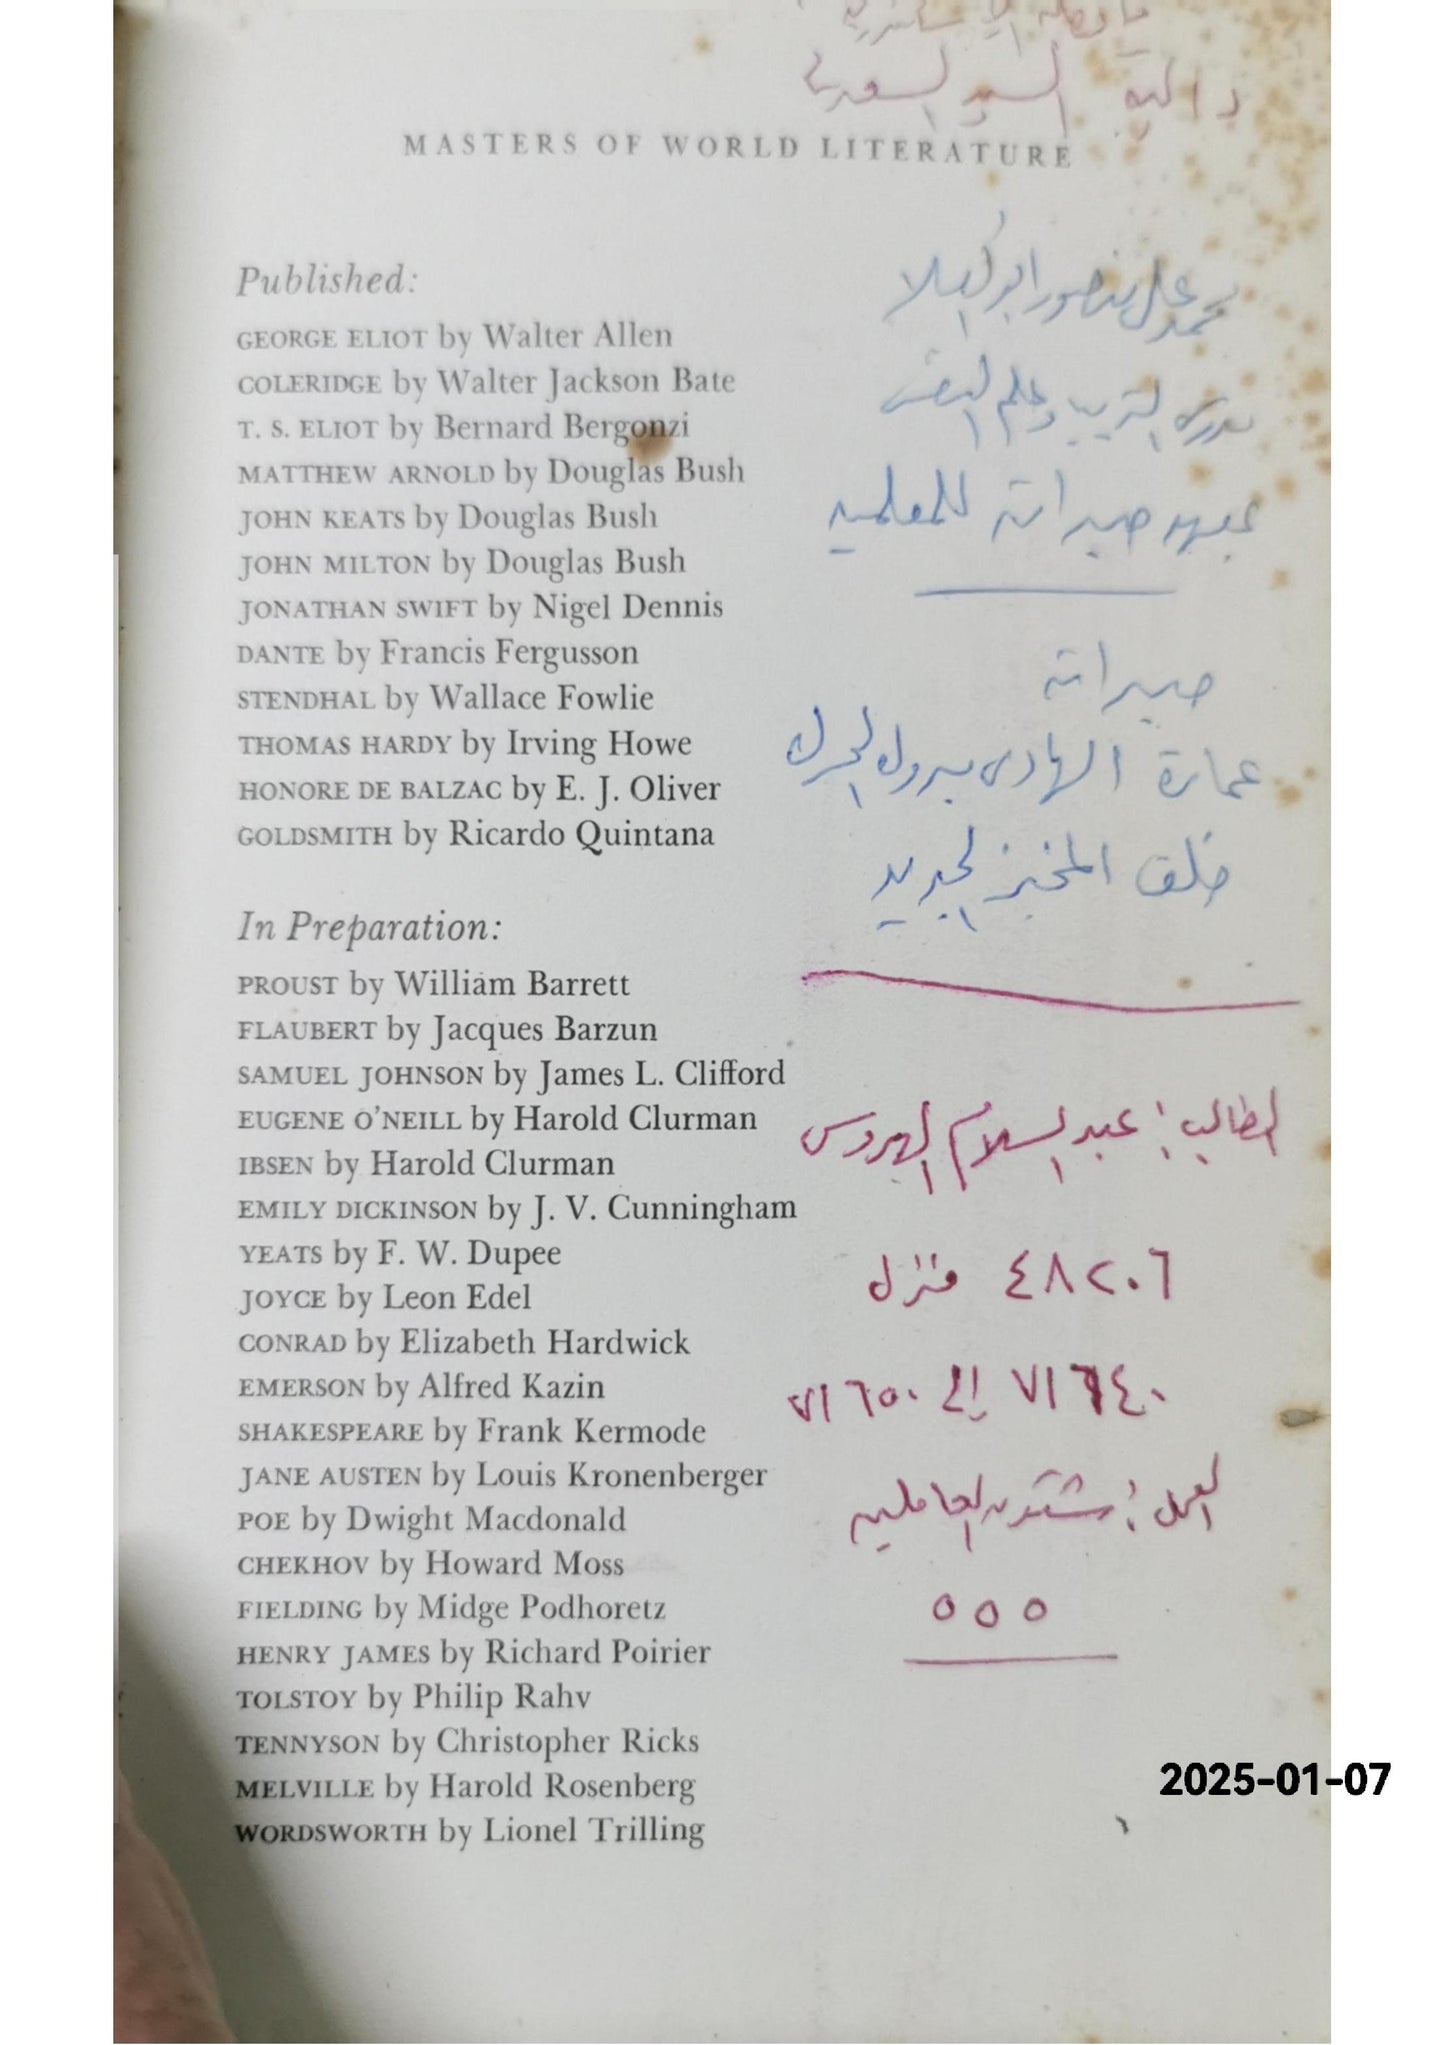 محافظة الإسكندرية
MASTERS OF WORLD LITERATURE
Published:
GEORGE ELIOT by Walter Allen
COLERIDGE by Walter Jackson Bate
T. S. ELIOT by Bernard Bergonzi
MATTHEW ARNOLD by Douglas Bush
JOHN KEATS by Douglas Bush
JOHN MILTON by Douglas Bush
JONATHAN SWIFT by Nigel Dennis
DANTE by Francis Fergusson
STENDHAL by Wallace Fowlie
THOMAS HARDY by Irving Howe
HONORE DE BALZAC by E. J. Oliver
GOLDSMITH by Ricardo Quintana
In Preparation:
PROUST by William Barrett
FLAUBERT by Jacques Barzun
SAMUEL JOHNSON by James L. Clifford
EUGENE O'NEILL by Harold Clurman
IBSEN by Harold Clurman
EMILY DICKINSON by J. V. Cunningham
YEATS by F. W. Dupee
JOYCE by Leon Edel
CONRAD by Elizabeth Hardwick
EMERSON by Alfred Kazin
SHAKESPEARE by Frank Kermode
JANE AUSTEN by Louis Kronenberger
POE by Dwight Macdonald
CHEKHOV by Howard Moss
FIELDING by Midge Podhoretz
HENRY JAMES by Richard Poirier
TOLSTOY by Philip Rahv
TENNYSON by Christopher Ricks
MELVILLE by Harold Rosenberg
WORDSWORTH by Lionel Trilling
محمد علي منصور ابو
مدرس التربية وعلم النفس
بمعهد صبراتة للمعلمين
صبراتة
عمارة الهادي
خلف المخبز الجديد
الطالب: عبد السلام
٤٨٢٠٦ منزل
٧١٦٤٠ إلى ٧١٦٥٠
العمل: شئون العاملين
٥٥٥
2025-01-07